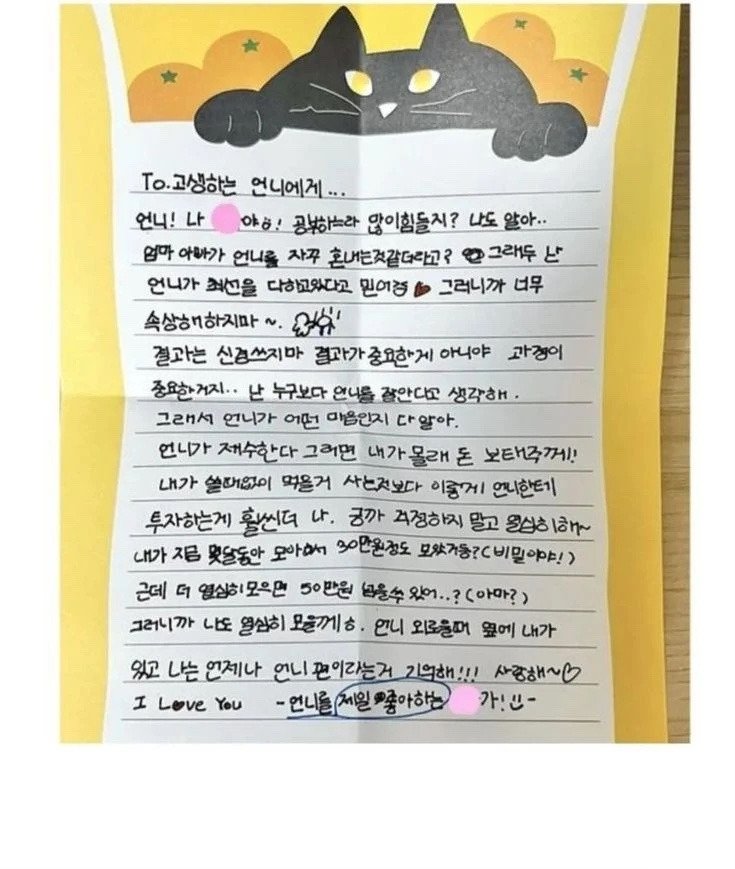 To.고생하는 언니에게...
언니! 나 야ㅎ! 공부하느라 많이힘들지? 나도 알아..
엄마 아빠가 언니를 자꾸 혼내는것같더라고? 그래두 난
언니가 최선을 다하고있다고 믿어졍 그러니까 너무
속상해하지마~.
결과는 신경쓰지마 결과가 중요한게 아니야 과정이
중요한거지.. 난 누구보다 언니를 잘안다고 생각해.
그래서 언니가 어떤 마음인지 다 알아.
언니가 재수한다 그러면 내가 몰래 돈 보태주께!!
내가 쓸때없이 먹을거 사는것보다 이렇게 언니한테
투자하는게 훨씬더 나. 긍까 걱정하지 말고 열심히해~
내가 지금 몇달동안 모아서 30만원정도 모았거등?(비밀이야!)
근데 더 열심히모으면 50만원 넘을수 있어..?(아마?)
그러니까 나도 열심히 모을께ㅎ. 언니 외로울때 옆에 내가
있고 나는 언제나 언니 편이라는거 기억해!!! 사랑해~♡
I Love You -언니를 제일 좋아하는 가!!-